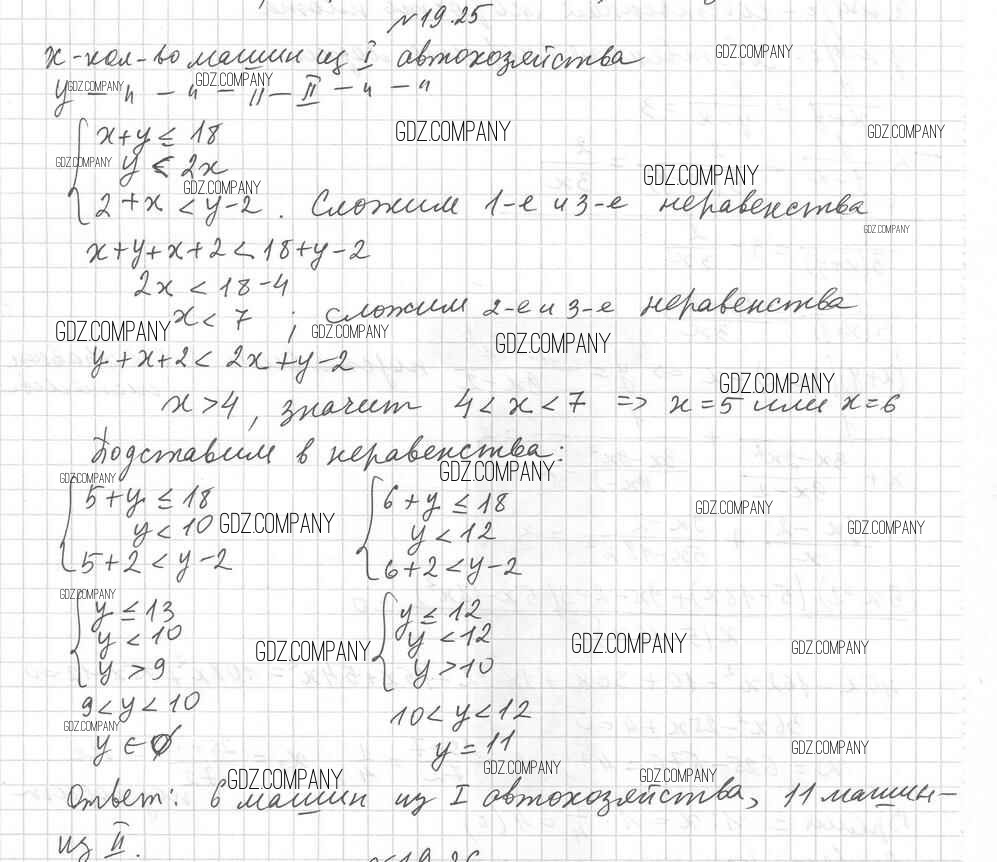 №19.25
x-кол-во машин из I автохозяйства
GDZ.COMPANY
y – " – " – II – II – " – "
GDZ.COMPANY GDZ.COMPANY
x+y ≤ 18
GDZ.COMPANY GDZ.COMPANY
y < 2x
GDZ.COMPANY GDZ.COMPANY
GDZ.COMPANY
2+x < y-2. Сложим 1-е и 3-е неравенства
GDZ.COMPANY
x+y+x+2 < 18+y-2
2x < 18-4
x < 7 ; сложим 2-е и 3-е неравенства
GDZ.COMPANY GDZ.COMPANY GDZ.COMPANY
y+x+2 < 2x+y-2
GDZ.COMPANY
x > 4, значит 4 < x < 7 => x=5 или x=6
Подставим в неравенства:
GDZ.COMPANY GDZ.COMPANY
5+y ≤ 18 6+y ≤ 18
GDZ.COMPANY
y < 10 y < 12
GDZ.COMPANY GDZ.COMPANY
5+2 < y-2 6+2 < y-2
GDZ.COMPANY
y ≤ 13 y ≤ 12
y < 10 y < 12
GDZ.COMPANY GDZ.COMPANY GDZ.COMPANY
y > 9 y > 10
9 < y < 10 10 < y < 12
GDZ.COMPANY
y ∈ ∅ y = 11
GDZ.COMPANY
GDZ.COMPANY GDZ.COMPANY GDZ.COMPANY
Ответ: 6 машин из I автохозяйства, 11 машин-
из II.
№19.26